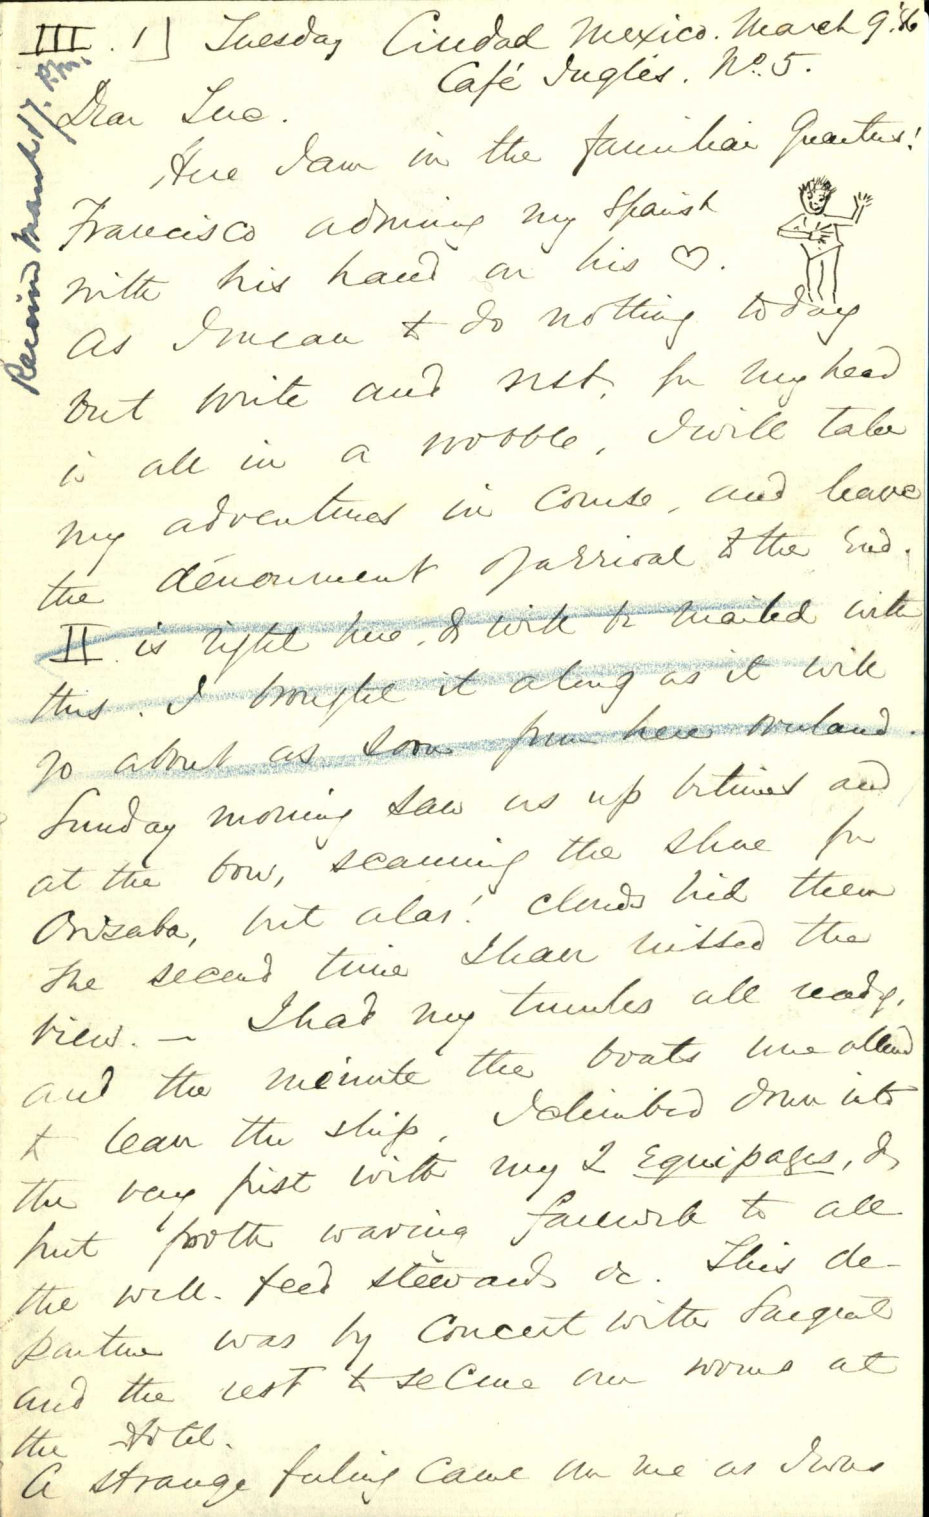 III. 1] Tuesday Ciudad Mexico. March 9. '86
Café Inglés. No. 5.
Received March 17. P.M.
Dear Luc.
Here I am in the familiar Quarters!
Francisco admiring my Spanish
with his hand on his ♡.
As I mean to do nothing today
but write and rest, for my head
is all in a wobble, I will take
my adventures in course, and leave
the dénoument of arrival to the End.
II is right here, & will be mailed with
this. I brought it along as it will
go about as soon from here overland.
Sunday morning saw us up betimes and
at the bow, scanning the shore for
Orizaba, but alas! clouds hid them
the second time I have missed the
view. — I had my trunks all ready,
and the minute the boats were allowed
to leave the ship, I climbed down into
the very first with my 2 Equipages, &
put forth waving farewell to all
the well-feed stewards &c. This de-
parture was by Concert with Sargent
and the rest to secure our rooms at
the Hotel.
A strange feeling came on me as I was